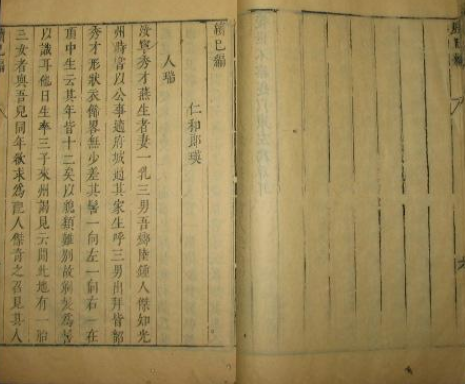 續巳編
仁和郎瑛
人瑞
汝寧秀才燕生者妻一乳三男吾鄉陸鍾人傑知光
州時嘗以公事適府城過其家生呼三男出拜皆韶
秀才形狀衣飾畧無少差其髻一向左一向右一在
頂中生云其年皆十二矣以貌類難別故剃髮為髻
以識耳他日生率三子來州謁見云聞此地有一胎
三女者與吾兒同年欲求為配人傑奇之召見其人
續巳編